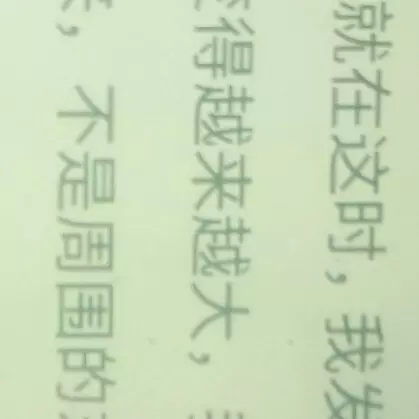 就在这时，我发
得越来越大，
，不是周围的